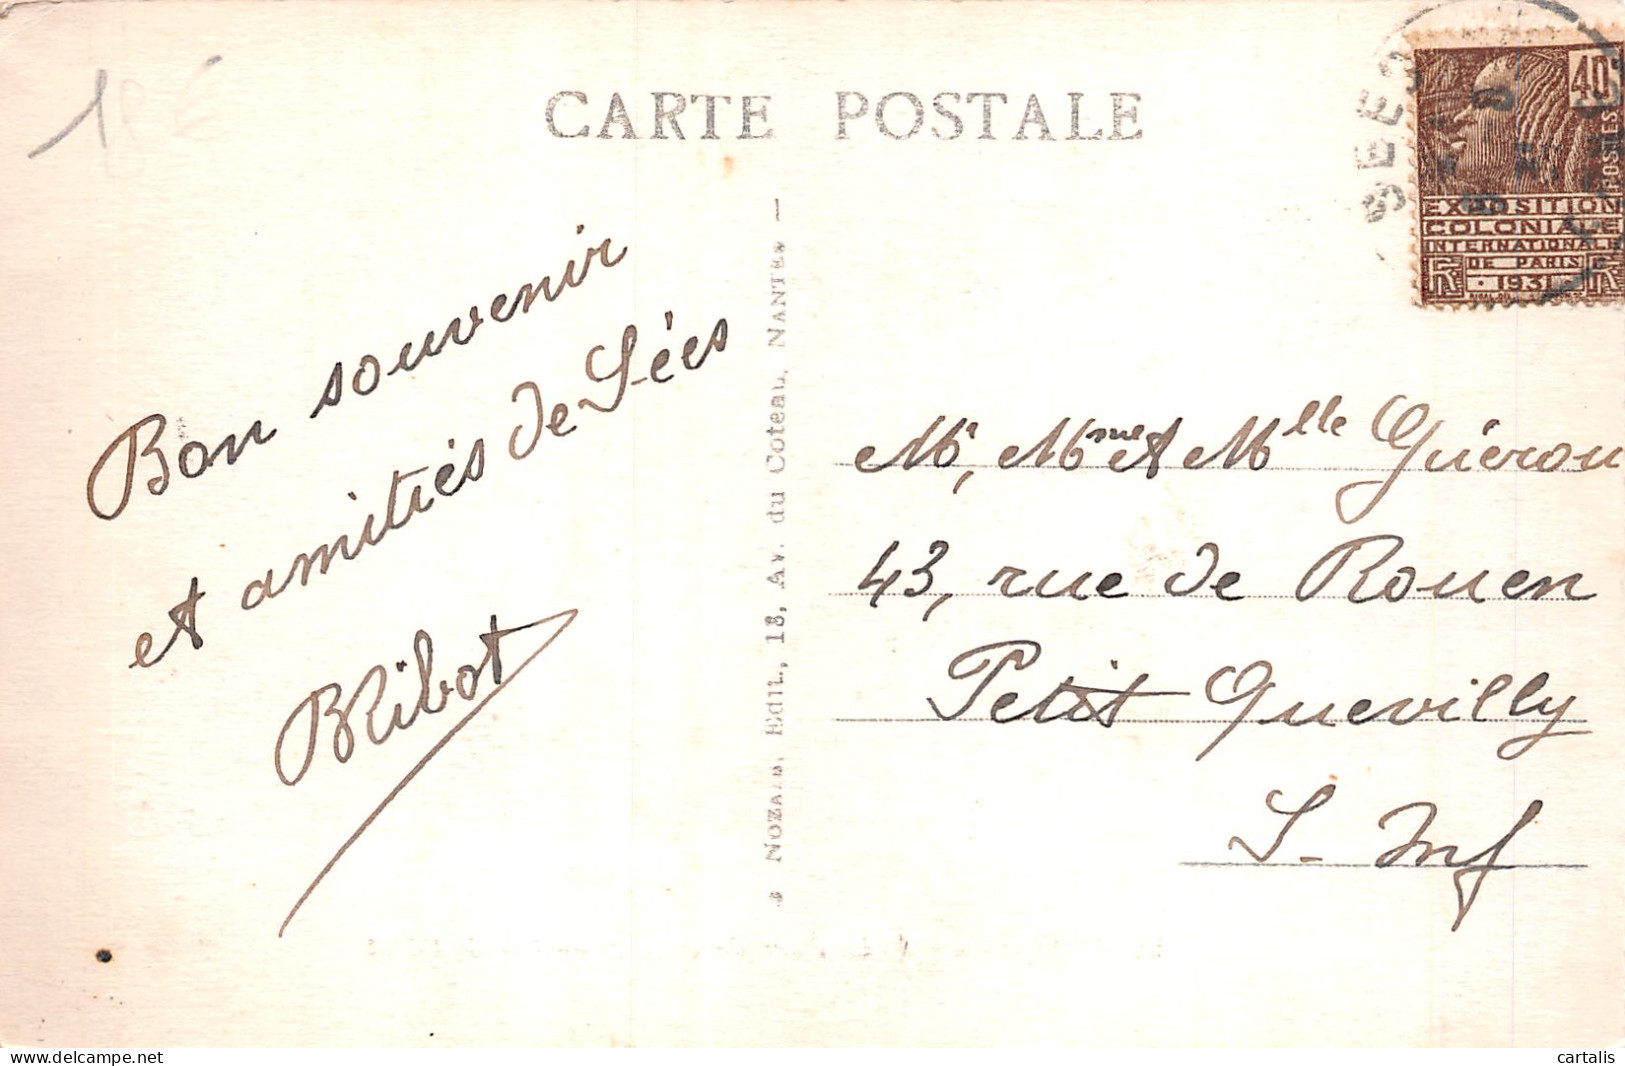 CARTE POSTALE
SEES
40c
POSTES
EXPOSITION
COLONIALE
INTERNATIONALE
DE PARIS
1931
Bon souvenir
et amitiés de Sées
Ribot
NOZAIS, Edit., 18, Av. du Coteau, NANTES
Mr, Mme et Mlle Guérou
43, rue de Rouen
Petit Quevilly
S. Inf
cartalis